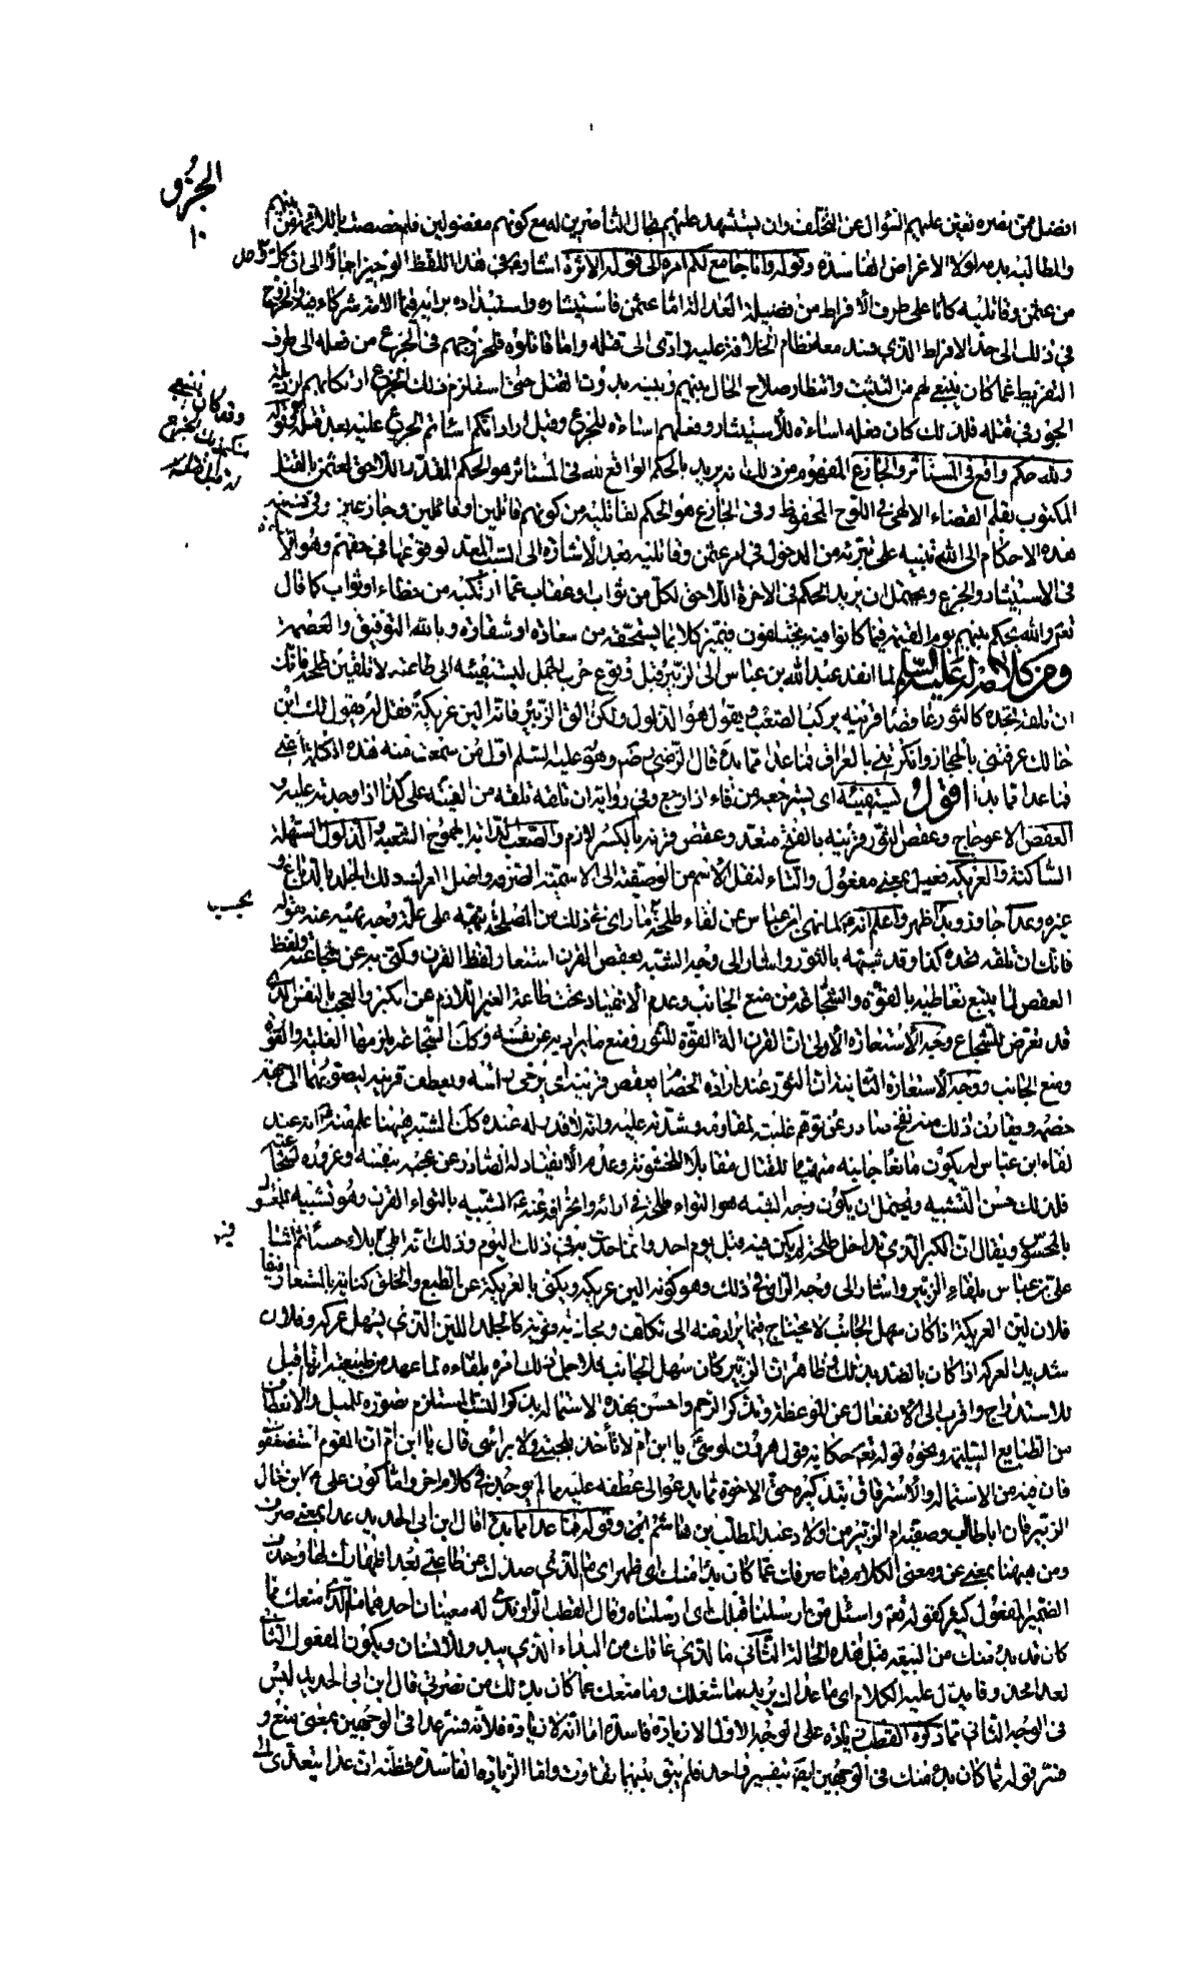 الجزو
١٠
افضل ممن نصره تعين عليهم السؤال عن التخلف وان يستشهد عليهم بحال الناصرين له مع كونهم مفضولين فلم خصصت باللائمة من بينهم
والمطالبة بدمه لولا الاغراض الفاسدة وقوله وانا جامع لكم امره الى قوله الاثرة اشار في هذا اللفظ الوجيز الى ان كل واحد
من عثمن وقاتليه كانا على طرف الافراط من فضيلة العدالة اما عثمن فاستيثاره واستبداده برايه فيما الامة شركاء فيه والخروج
في ذلك الى حد الافراط الذي فسد معه نظام الخلافة عليه وادى الى قتله واما قاتلوه فلخروجهم في الجزع من فعله الى طرف
التفريط عما كان ينبغي لهم من التثبت وانتظار صلاح الحال بينهم وبينه بدون القتل حتى استلزم ذلك الجزع ارتكابهم لرذيلة
الجور في قتله فلذلك كان فعله اساءة للاستيثار وفعلهم اساءة للجزع وقيل اراد انكم اسأتم الجزع عليه بعد قتله وقوله
وقد كان ينبغي
منكم ذلك الجزع
له قبل قتله
ولله حكم واقع في المستاثر والجازع المفهوم من ذلك انه يريد بالحكم الواقع لله في المستاثر هو الحكم المقدر اللاحق لعثمن بالقتل
المكتوب بقلم القضاء الالهي في اللوح المحفوظ وفي الجازع هو الحكم لقاتليه من كونهم قاتلين او قالين وجازعين وفي نسبة
هذه الاحكام الى الله تنبيه على تبريه من الدخول في امر عثمن وقاتليه بعد الاشارة الى السبب المعد لوقوعها في حقهم وهو الاساءة
في الاستيثار والجزع ويحتمل ان يريد الحكم في الاخرة اللاحق لكل من ثواب وعقاب عما ارتكبه من خطاء او ثواب كما قال
تعم والله يحكم بينهم يوم القيمة فيما كانوا فيه يختلفون فيميز كلا بما يستحقه من سعادة او شقاوة وبالله التوفيق والعصمة
ومن كلام له عليه السلم لما انفذ عبد الله بن عباس الى الزبير قبل وقوع حرب الجمل ليستفيئه الى طاعته لا تلقين طلحة فانك
ان تلقه تجده كالثور عاقصا قرنه يركب الصعب ويقول هو الذلول ولكن الق الزبير فانه الين عريكة فقل له يقول لك ابن
خالك عرفتني بالحجاز وانكرتني بالعراق فما عدا مما بدا قال الرضي رضه وهو عليه السلم اول من سمعت منه هذه الكلمة اعني
فما عدا مما بدا اقول ليستفيئه اي يسترجعه من فاء اذا رجع وفي رواية ان تلقه تلفه من الفيته على كذا اذا وجدته عليه و
العقص الاعوجاج وعقص الثور قرنيه بالفتح متعد وعقص قرنه بالكسر لازم والصعب الدابة الجموح الشغبة والذلول السهلة
الساكنة والعريكة فعيل بمعنى مفعول والتاء لنقل الاسم من الوصفية الى الاسمية الصرفة واصل العرك دلك الجلد بالدباغ و
غيره وعدا جاوز وبدا ظهر واعلم انه لما نهى ابن عباس عن لقاء طلحة لما راى في ذلك من المصلحة نبهه على علة وجه نهيه عنه بقوله
بحسب
فانك ان تلقه تجده كذا وقد شبهه بالثور واشار الى وجه الشبه بعقص القرن استعار لفظ القرن وكنى به عن شجاعته ولفظ
العقص لما يتبع تعاطيه بالقوة والشجاعة من منع الجانب وعدم الانقياد تحت طاعة الغير اللازم عن الكبر والعجب بالنفس الذى
قد تعرض للشجاع ووجه الاستعارة الاولى ان القرن الة القوة للثور ومنع ما يراد به عن نفسه وكذلك الشجاعة يلزمها الغلبة والقوة
ومنع الجانب ووجه الاستعارة الثانية ان الثور عند ارادة الخصام يعقص قرنيه اي يرخي راسه ويعطف قرنيه ليصوبهما الى جهة
خصمه ويقارن ذلك منه نفخ صادر عن توهم غلبته لمقاومه وشدته عليه وانه لا قدر له عنده كذلك المشبه ههنا علم منه انه عند
لقاء ابن عباس له يكون مانعا جانبه متهيئا للقتال مقابلا بالخشونة وعدم الانقياد له الصادر عن عجبه بنفسه وغروره لشجاعته
فلذلك حسن التشبيه ويحتمل ان يكون وجه الشبه هو التواء طلحة في ارائه وانحرافه عنه الشبيه بالتواء القرن وهو تشبيه للمعقول
بالمحسوس ويقال ان الكبر الذي تداخل طلحة لم يكن فيه قبل يوم احد وانما حدث به في ذلك اليوم وذلك انه ابلى بلاء حسنا ثم اشار
فيه
على ابن عباس بلقاء الزبير واشار الى وجه الراي في ذلك وهو كونه الين عريكة ويكنى بالعريكة عن الطبع والخلق كناية بالمستعار فيقا
فلان لين العريكة اذا كان سهل الجانب لا يحتاج فيما يراد منه الى تكلف ومجاذبة قوية كالجلد اللين الذي يسهل عركه وفلان
شديد العريكة اذا كان بالضد من ذلك وظاهر ان الزبير كان سهل الجانب فلاجل ذلك امره بلقاءه لما عهد من طبيعته انها اقبل
للاستدراج واقرب الى الانفعال عن الموعظة وتذكر الرحم واحسن بهذه الاستمالة بذكر النسب المستلزم تصوره للميل والانعطاف
من الطبايع السليمة ونحوه قوله تعم حكاية قول هرون لموسى يا ابن ام لا تاخذ بلحيتي ولا براسي قال يا ابن ام ان القوم استضعفوني
فان فيه من الاستمالة والاسترقاق بتذكيره حق الاخوة ما يدعو الى عطفه عليه ما لم يوجد في كلام اخر واما كون علي عم ابن خال
الزبير فان اباطالب وصفية ام الزبير من اولاد عبد المطلب بن هاشم انتهى وقوله فما عدا مما بدا قال ابن ابي الحديد عدا بمعنى صرف
ومن ههنا بمعنى عن ومعنى الكلام فما صرفك عما كان بدا منك اي ظهر اي ما الذي صدك عن طاعتي بعد اظهارك لها وحذف
الضمير المفعول كثير كقوله تعم واسئل من ارسلنا قبلك اي ارسلناه وقال القطب الراوندي له معنيان احدهما ما الذي منعك مما
كان قد بدا منك من البيعة قبل هذه الحالة الثاني ما الذي عاقك من البداء الذي يبدو للانسان ويكون المفعول الثاني
لعدا محذوفا يدل عليه الكلام اي ما عداك يريد ما شغلك وما منعك عما كان بدا لك من نصرتي قال ابن ابي الحديد ليس
في الوجه الثاني مما ذكره القطب زيادة على الوجه الاول الا زيادة فاسدة اما انه لا زيادة فلانه فسر عدا في الوجهين بمعنى منع و
فسر قوله مما كان بدا منك في الوجهين ايضا بتفسير واحد فلم يبق بينهما تفاوت واما الزيادة الفاسدة فظنه ان عدا يتعدى الى